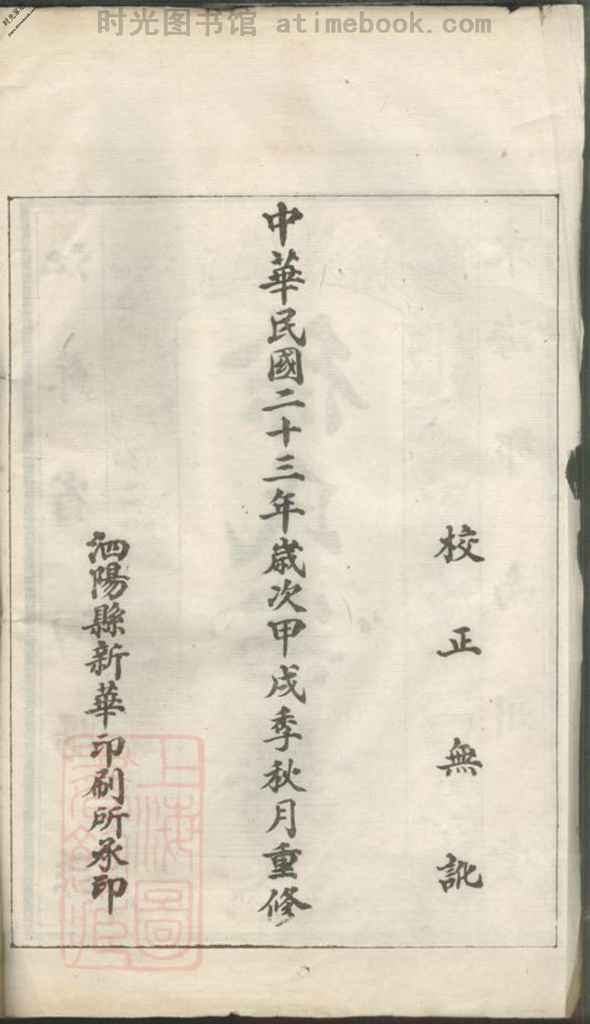 时光图书馆 atimebook.com
校正無訛
中華民國二十三年歲次甲戌季秋月重修
泗陽縣新華印刷所承印